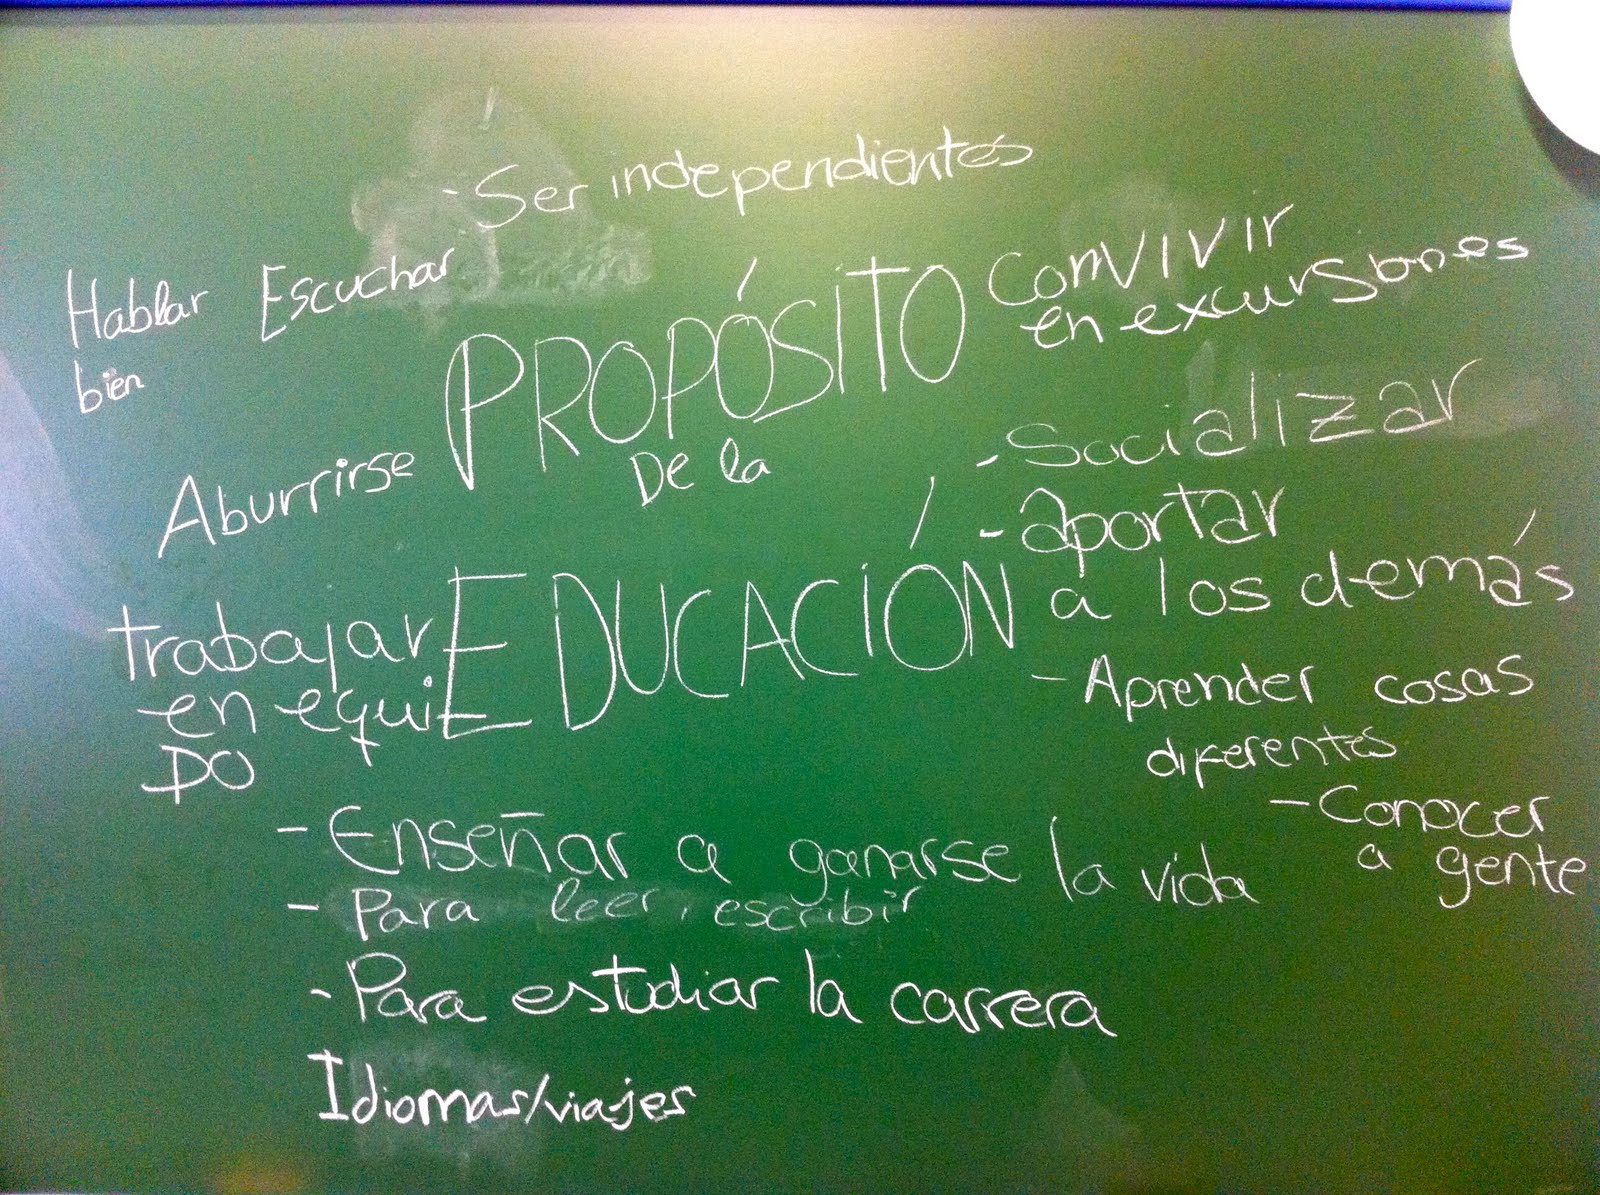 - Ser independientes
Hablar
bien
Escuchar
Aburrirse
trabajar
en equi
PO
PROPÓSITO
De la
EDUCACIÓN
Convivir
en excursiones
- Socializar
- aportar
a los demás
- Aprender cosas
diferentes
- Conocer
a gente
- Enseñar a ganarse la vida
- Para leer, escribir
- Para estudiar la carrera
Idiomas/viajes